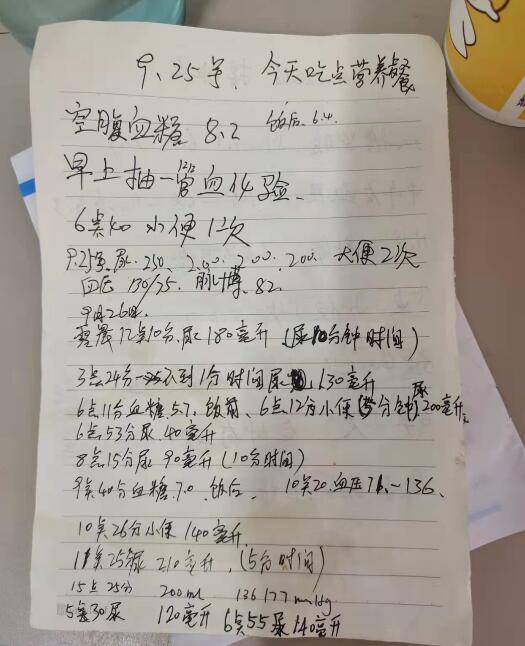 9.25号、今天吃点营养餐
空腹血糖 8.2 饭后6.4
早上抽一管血化验、
6点40 小便1次
9.25号.尿.250、200.200.200. 大便2次
血压 130/75. 脉搏、82.
9月26日.
12点10分、尿180毫升 (尿10分钟时间)
3点24分 不到1分时间尿 130毫升
6点11分血糖5.7、饭前、6点12分小便(5分钟)尿200毫升、
6点53分尿40毫升
8点15分尿 90毫升(10分时间)
9点40分血糖7.0.饭后、 10点20.血压71~136、
10点26分小便140毫升
11点25分尿210毫升、(5分时间)
15点25分 200ml 136 177 mmHg
5点30尿 120毫升 6点55尿140毫升